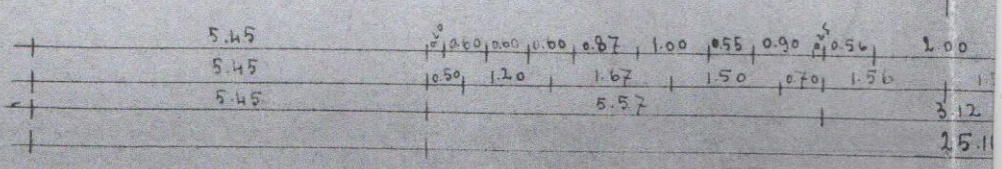 5.45 0.60 0.60 0.60 0.87 1.00 0.55 0.90 0.56 2.00
5.45 0.50 1.20 1.67 1.50 0.70 1.56
5.45 5.57 3.12
25.11